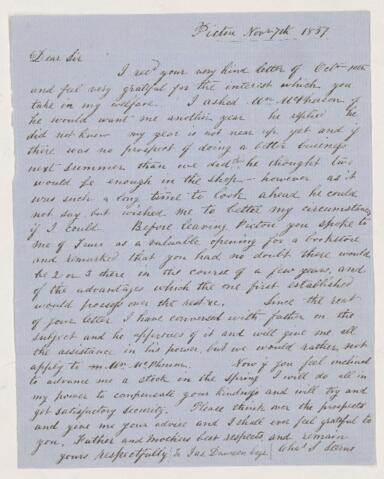 Pictou Nov 7th 1857
Dear Sir
I recd your very kind letter of Octr 10th
and feel very grateful for the interest which you
take in my welfare. I asked Mr McPherson if
he would want me another year he replied he
did not know my year is not near up yet and if
there was no prospect of doing a better business
next summer than we did he thought two
would be enough in the shop — however as it
was such a long time to look ahead he could
not say but wished me to better my circumstances
if I could. Before leaving Pictou you spoke to
me of Truro as a valuable opening for a bookstore
and remarked that you had no doubt there would
be 2 or 3 there in the course of a few years, and
of the advantages which the one first established
would possess over the rest. Since the
of your letter I have conversed with father on the
subject and he approves of it and will give me all
the assistance in his power but we would rather not
apply to Mr Mc Now if you feel inclined
to advance me a stock in the spring I will do all in
my power to compensate your kindness and will try and
get satisfactory security. Please think over the prospects
and give me your advice and I shall ever feel grateful to
you. Father and mothers best respects, and remain
yours respectfully To Jas Dawson Esqr Chas